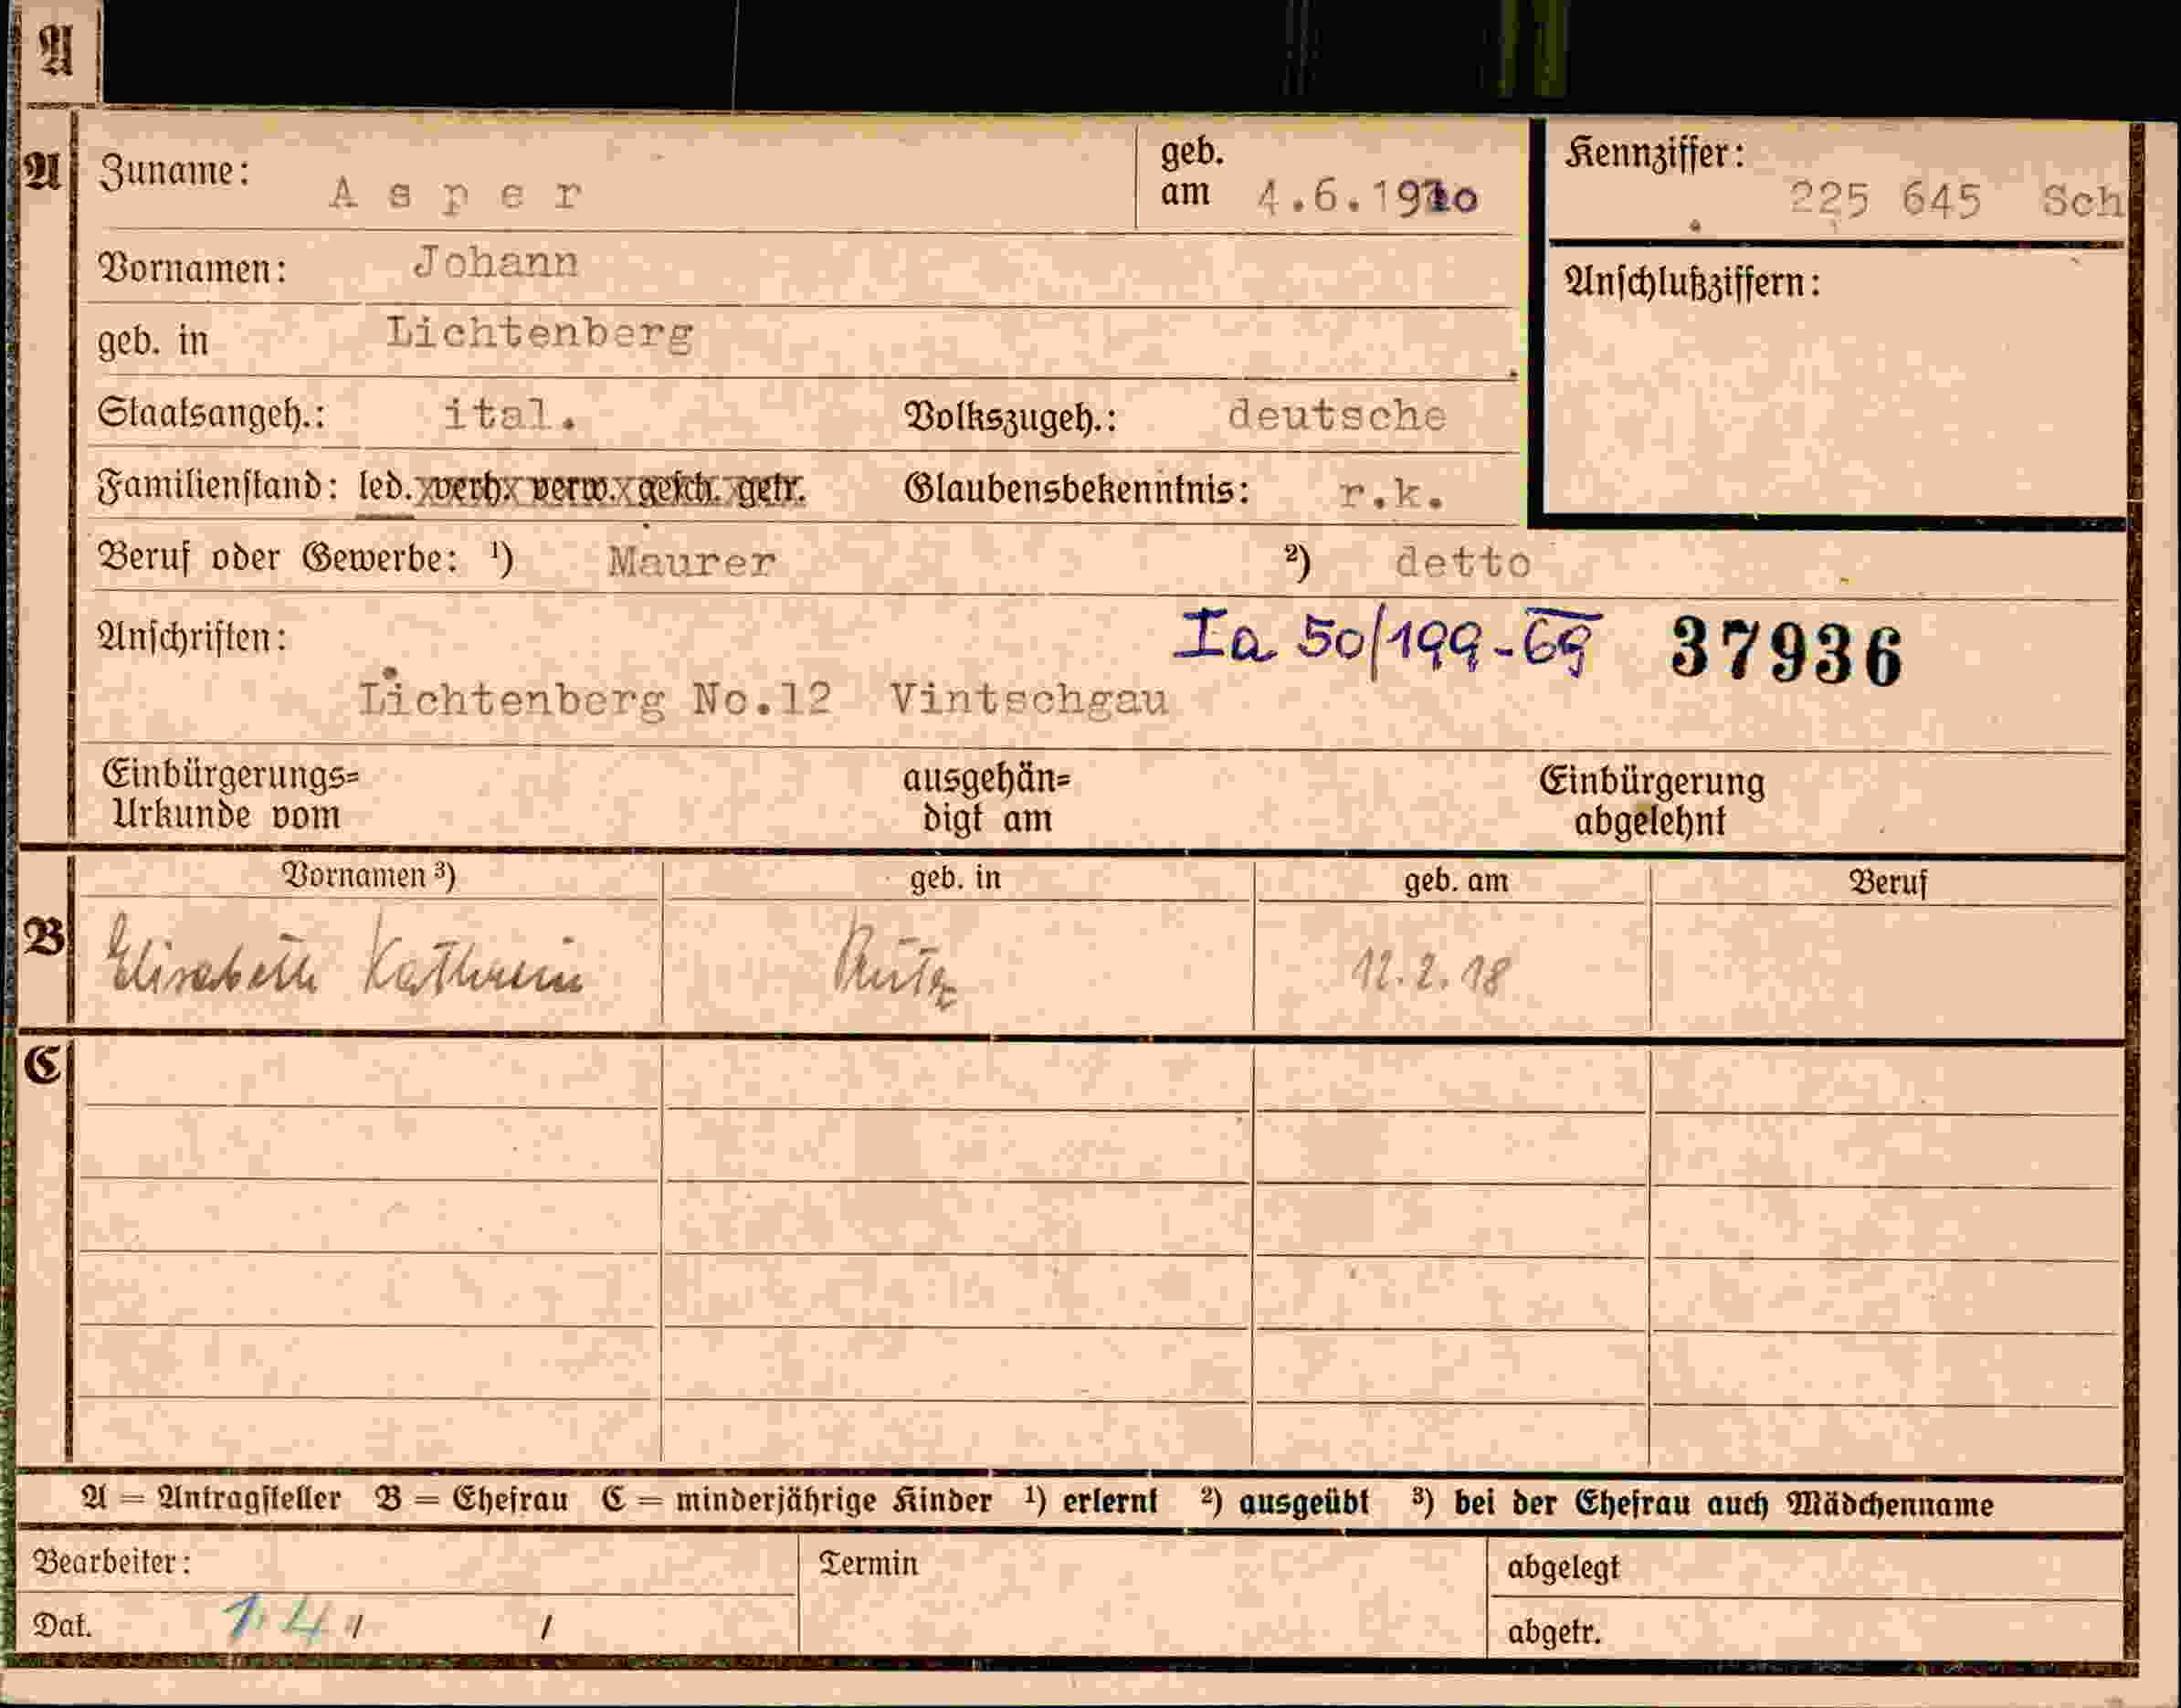 A
A
Zuname: Asper geb. am 4.6.1910 Kennziffer: 225 645 Sch
Vornamen: Johann Anschlußziffern:
geb. in Lichtenberg
Staatsangeh.: ital. Volkszugeh.: deutsche
Familienstand: led. verh. verw. gesch. getr. Glaubensbekenntnis: r.k.
Beruf oder Gewerbe: ¹) Maurer ²) detto
Anschriften: Ia 50/199-69 37936
Lichtenberg No.12 Vintschgau
Einbürgerungs=
Urkunde vom
ausgehän=
digt am
Einbürgerung
abgelehnt
Vornamen ³) geb. in geb. am Beruf
B Elisabeth Kathrein 12.2.18
C
A = Antragsteller B = Ehefrau C = minderjährige Kinder ¹) erlernt ²) ausgeübt ³) bei der Ehefrau auch Mädchenname
Bearbeiter: Termin abgelegt
Dat. 1.4. / abgetr.